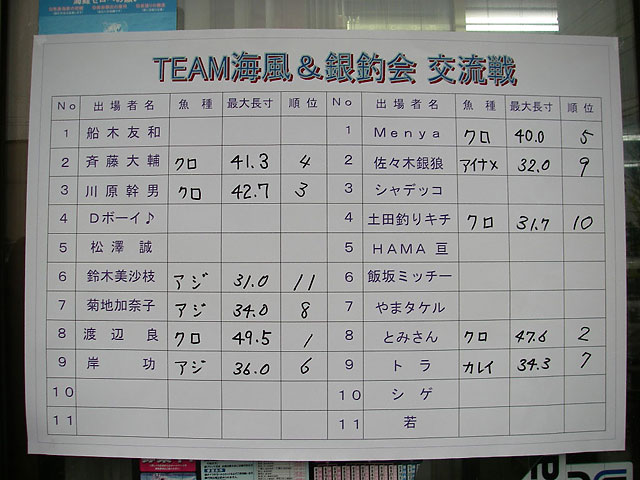 TEAM海風＆銀釣会 交流戦
No 出場者名 魚種 最大長寸 順位 No 出場者名 魚種 最大長寸 順位
1 船木友和 1 Menya クロ 40.0 5
2 斉藤大輔 クロ 41.3 4 2 佐々木銀狼 アイナメ 32.0 9
3 川原幹男 クロ 42.7 3 3 シャデッコ
4 Dボーイ♪ 4 土田釣りキチ クロ 31.7 10
5 松澤誠 5 HAMA亘
6 鈴木美沙枝 アジ 31.0 11 6 飯坂ミッチー
7 菊地加奈子 アジ 34.0 8 7 やまタケル
8 渡辺良 クロ 49.5 1 8 とみさん クロ 47.6 2
9 岸功 アジ 36.0 6 9 トラ カレイ 34.3 7
10 10 シゲ
11 11 若